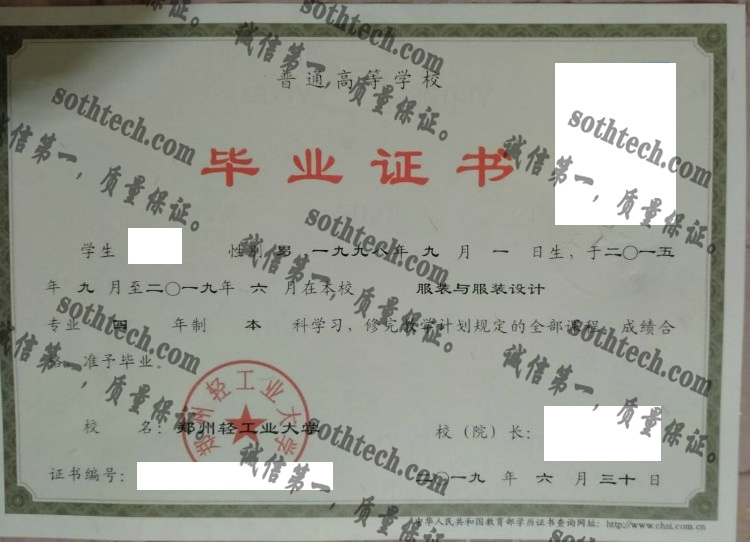 普通高等学校
毕业证书
学生 性别 男 一九九八年 九 月 一 日生，于二〇一五
年 九 月至二〇一九年 六 月在本校 服装与服装设计
专业 四 年制 本 科学习，修完教学计划规定的全部课程，成绩合
格，准予毕业。
郑州轻工业大学
校 名：郑州轻工业大学 校（院）长：
证书编号： 二〇一九 年 六 月 三十 日
中华人民共和国教育部学历证书查询网址：http://www.chsi.com.cn
sothtech.com
诚信第一，质量保证。
sothtech.com
诚信第一，质量保证。
sothtech.com
诚信第一，质量保证。
sothtech.com
诚信第一，质量保证。
sothtech.com
诚信第一，质量保证。
sothtech.com
诚信第一，质量保证。
sothtech.com
诚信第一，质量保证。